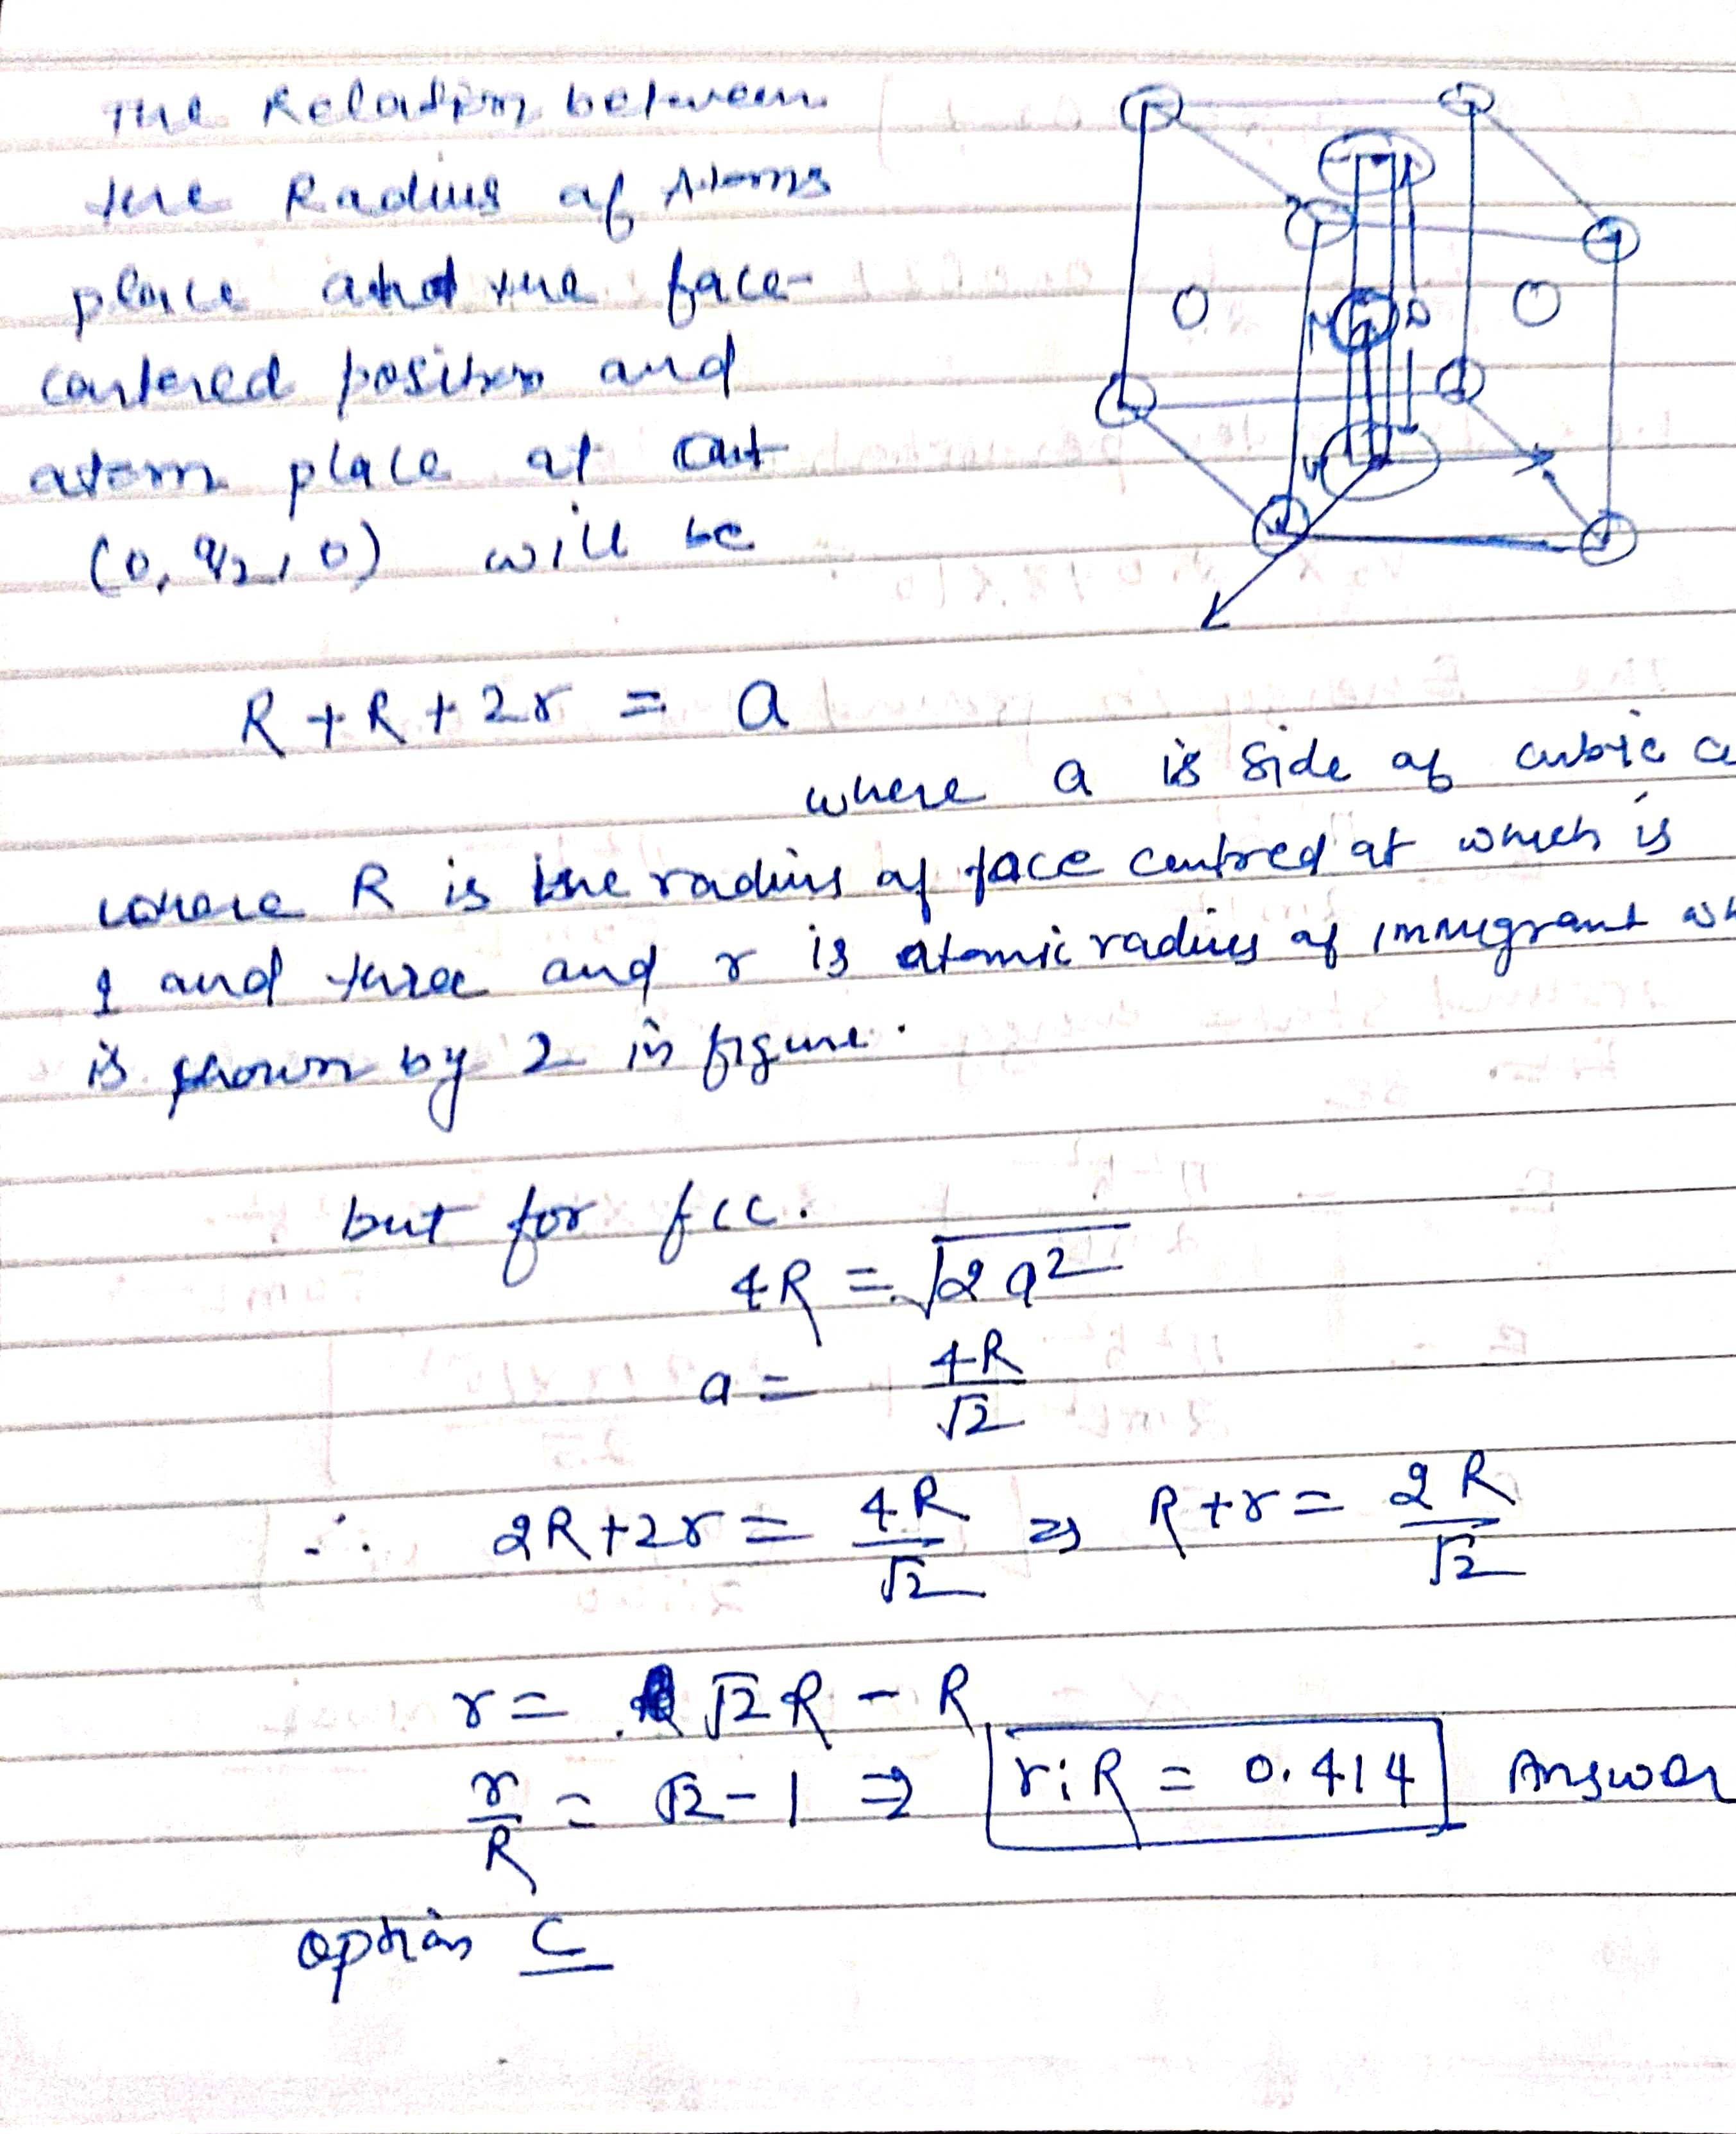 The Relation between
the Radius of Atoms
place and the face-
centered position and
atom place at
(0, a/2, 0) will be
R + R + 2r = a
where a is side of cubic ce
where R is the radius of face centred at which is
1 and three and r is atomic radius of immigrant wh
is shown by 2 in figure.
but for fcc.
4R = √2a²
a = 4R/√2
∴ 2R+2r = 4R/√2 ⇒ R+r = 2R/√2
r = √2 R - R
r/R = √2 - 1 ⇒ r:R = 0.414 Answer
option C